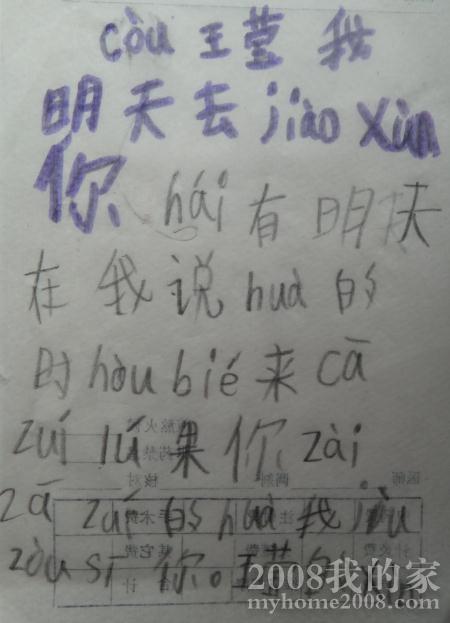 còu 王莹 我
明天去 jiào xùn
你 hái 有 明天
在 我 说 huà 的
时 hòu bié 来 cā
zuí lú 果 你 zài
zā zuí 的 huà 我 jiù
zòu sǐ 你。王莹
2008我的家
myhome2008.com